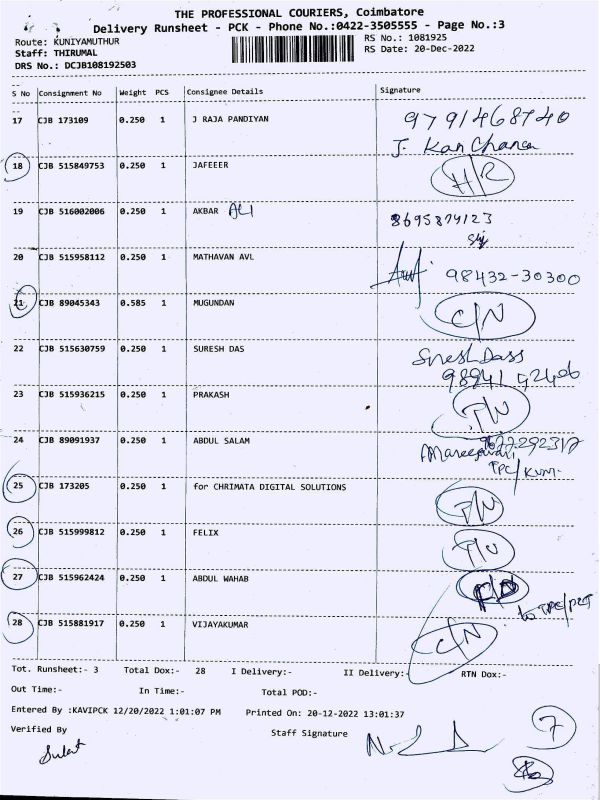 THE PROFESSIONAL COURIERS, Coimbatore
Delivery Runsheet - PCK - Phone No.:0422-3505555 - Page No.:3
Route: KUNIYAMUTHUR
RS No.: 1081925
Staff: THIRUMAL
RS Date: 20-Dec-2022
DRS No.: DCJB108192503
S No Consignment No Weight PCS Consignee Details Signature
17 CJB 173109 0.250 1 J RAJA PANDIYAN 9791468740
J. Kanchana
18 CJB 515849753 0.250 1 JAFEEER H/R
19 CJB 516002006 0.250 1 AKBAR ALI 8695874123
20 CJB 515958112 0.250 1 MATHAVAN AVL 98432-30300
21 CJB 89045343 0.585 1 MUGUNDAN C/N
22 CJB 515630759 0.250 1 SURESH DAS Suresh Dass
23 CJB 515936215 0.250 1 PRAKASH
24 CJB 89091937 0.250 1 ABDUL SALAM
25 CJB 173205 0.250 1 for CHRIMATA DIGITAL SOLUTIONS
26 CJB 515999812 0.250 1 FELIX
27 CJB 515962424 0.250 1 ABDUL WAHAB
28 CJB 515881917 0.250 1 VIJAYAKUMAR C/N
Tot. Runsheet:- 3 Total Dox:- 28 I Delivery:- II Delivery:- RTN Dox:-
Out Time:- In Time:- Total POD:-
Entered By :KAVIPCK 12/20/2022 1:01:07 PM Printed On: 20-12-2022 13:01:37
Verified By Staff Signature
7